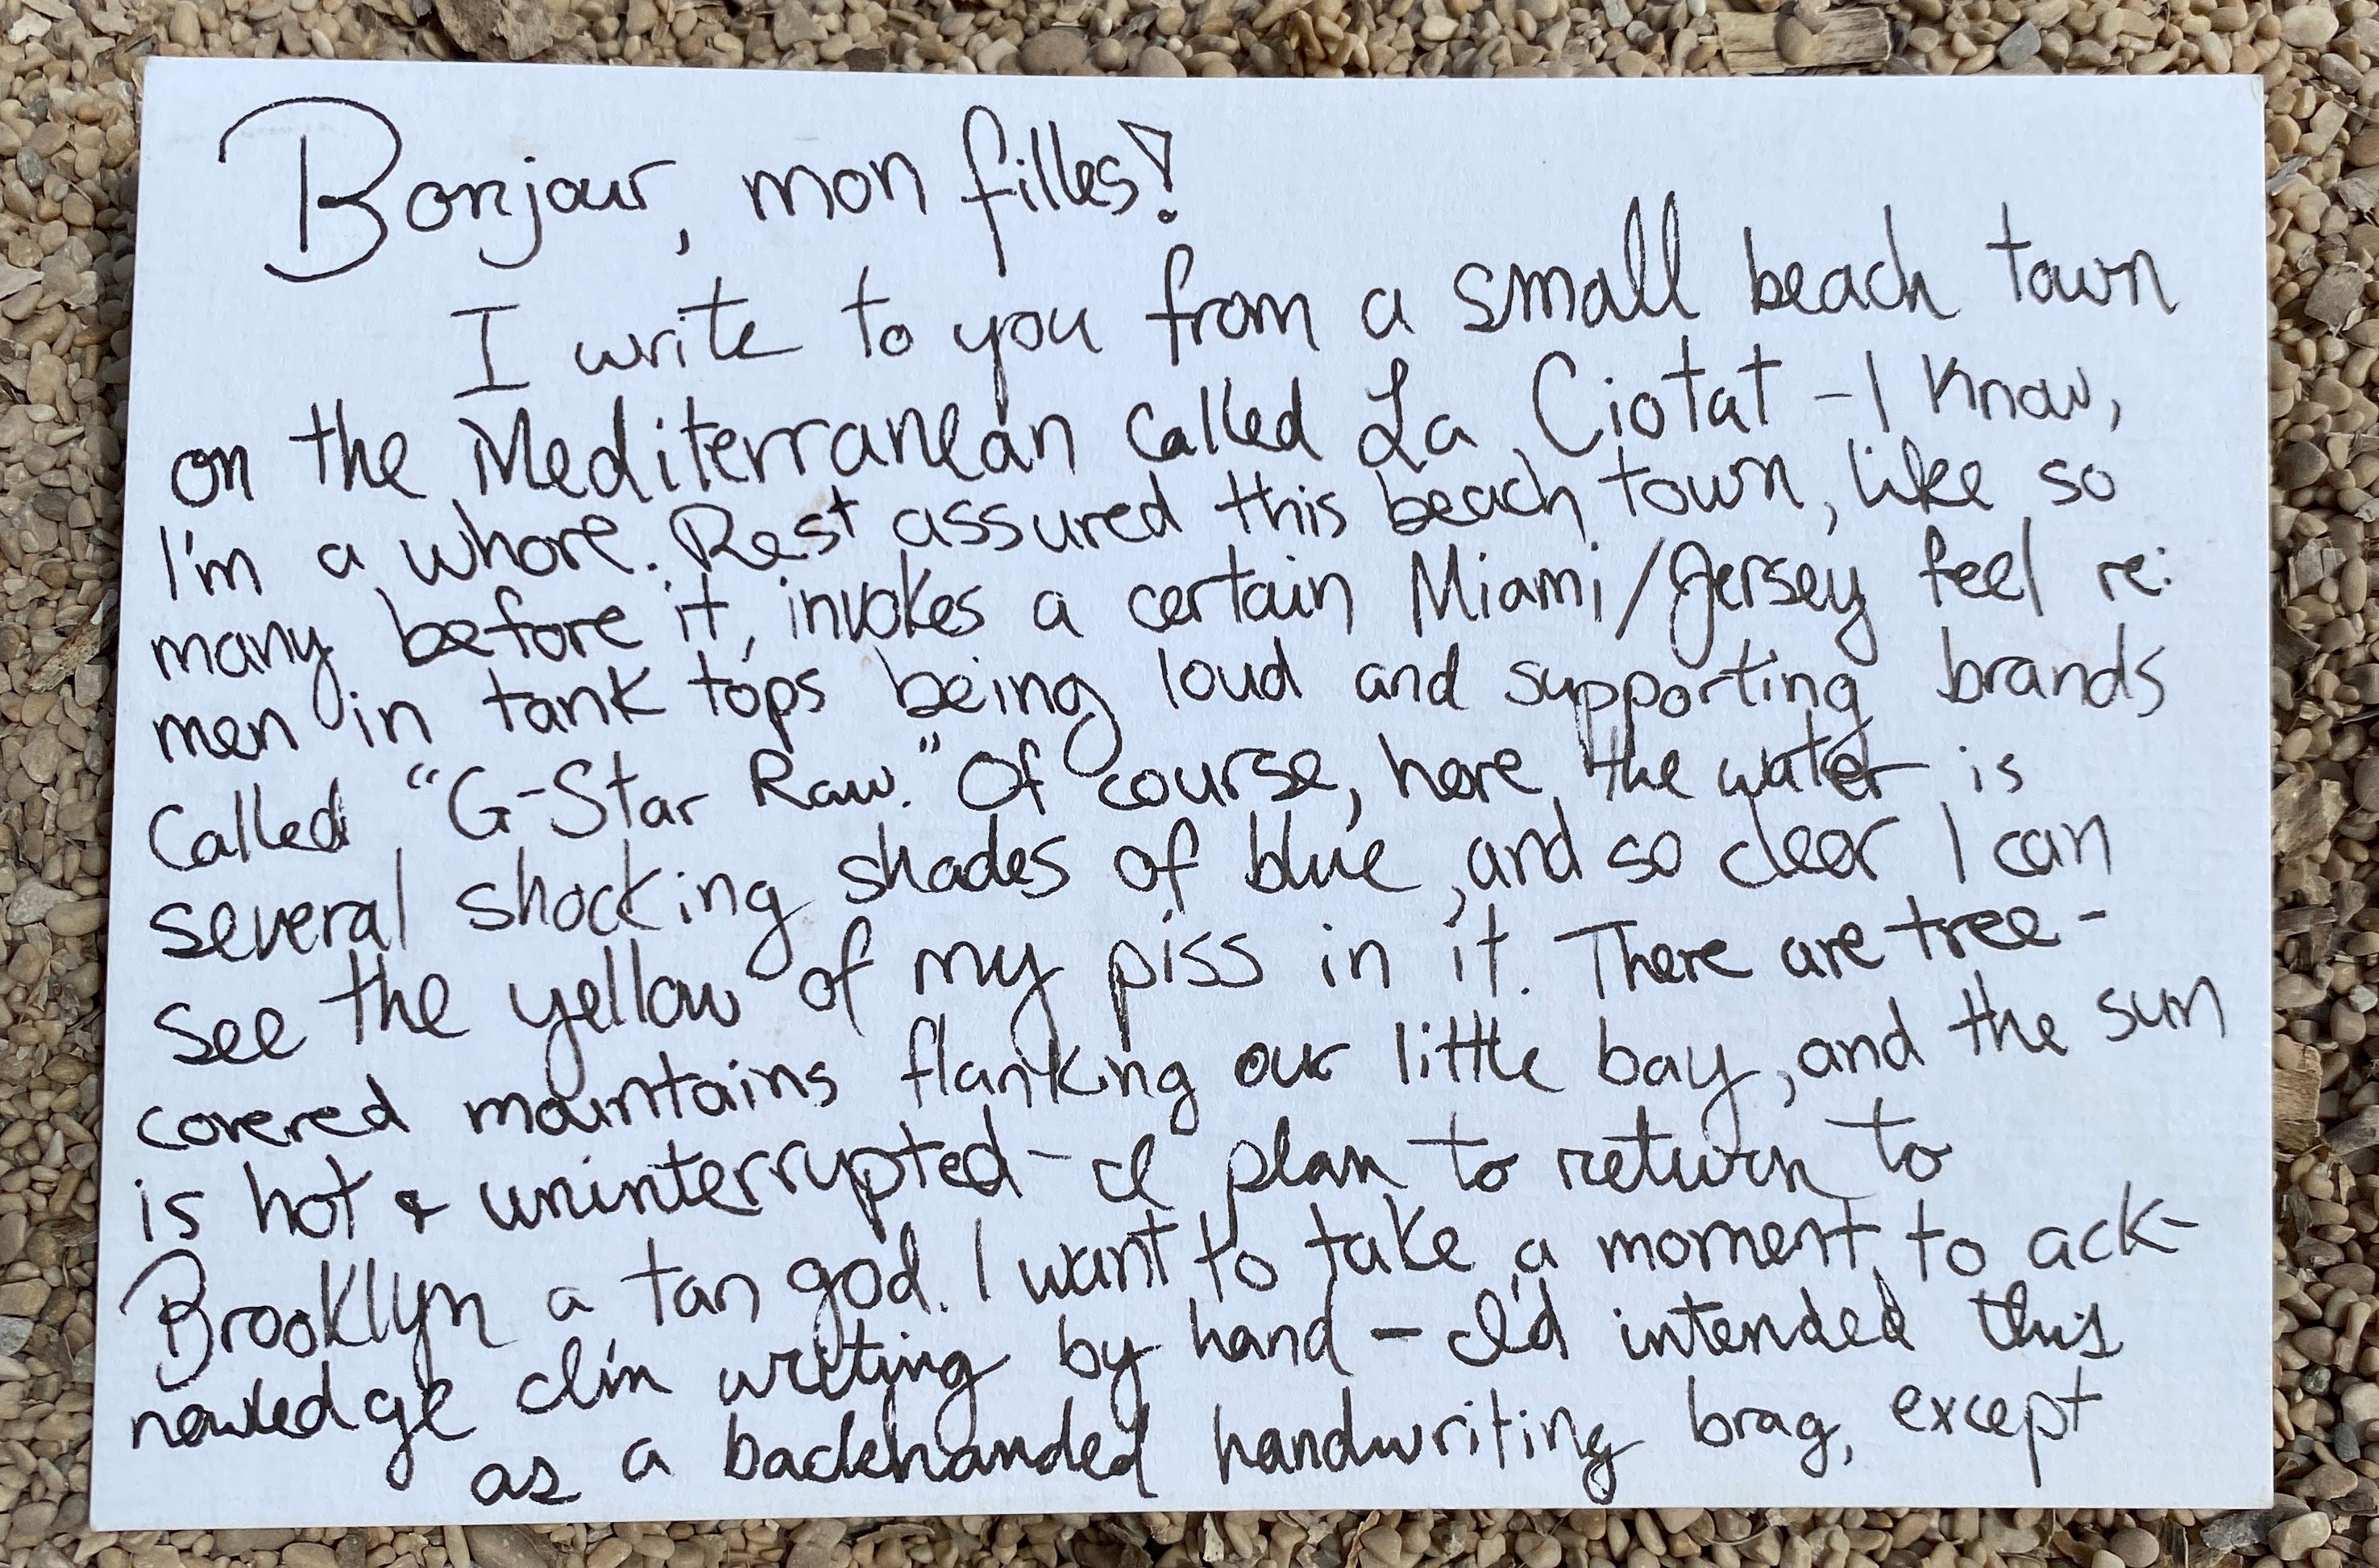 Bonjour, mon filles!
I write to you from a small beach town
on the Mediterranean called La Ciotat - I know,
I'm a whore. Rest assured this beach town, like so
many before it, invokes a certain Miami/Jersey feel re:
men in tank tops being loud and supporting brands
called "G-Star Raw." Of course, here the water is
several shocking shades of blue, and so clear I can
see the yellow of my piss in it. There are tree-
covered mountains flanking our little bay, and the sun
is hot & uninterrupted - I plan to return to
Brooklyn a tan god. I want to take a moment to ack-
nowledge I'm writing by hand - I'd intended this
as a backhanded handwriting brag, except